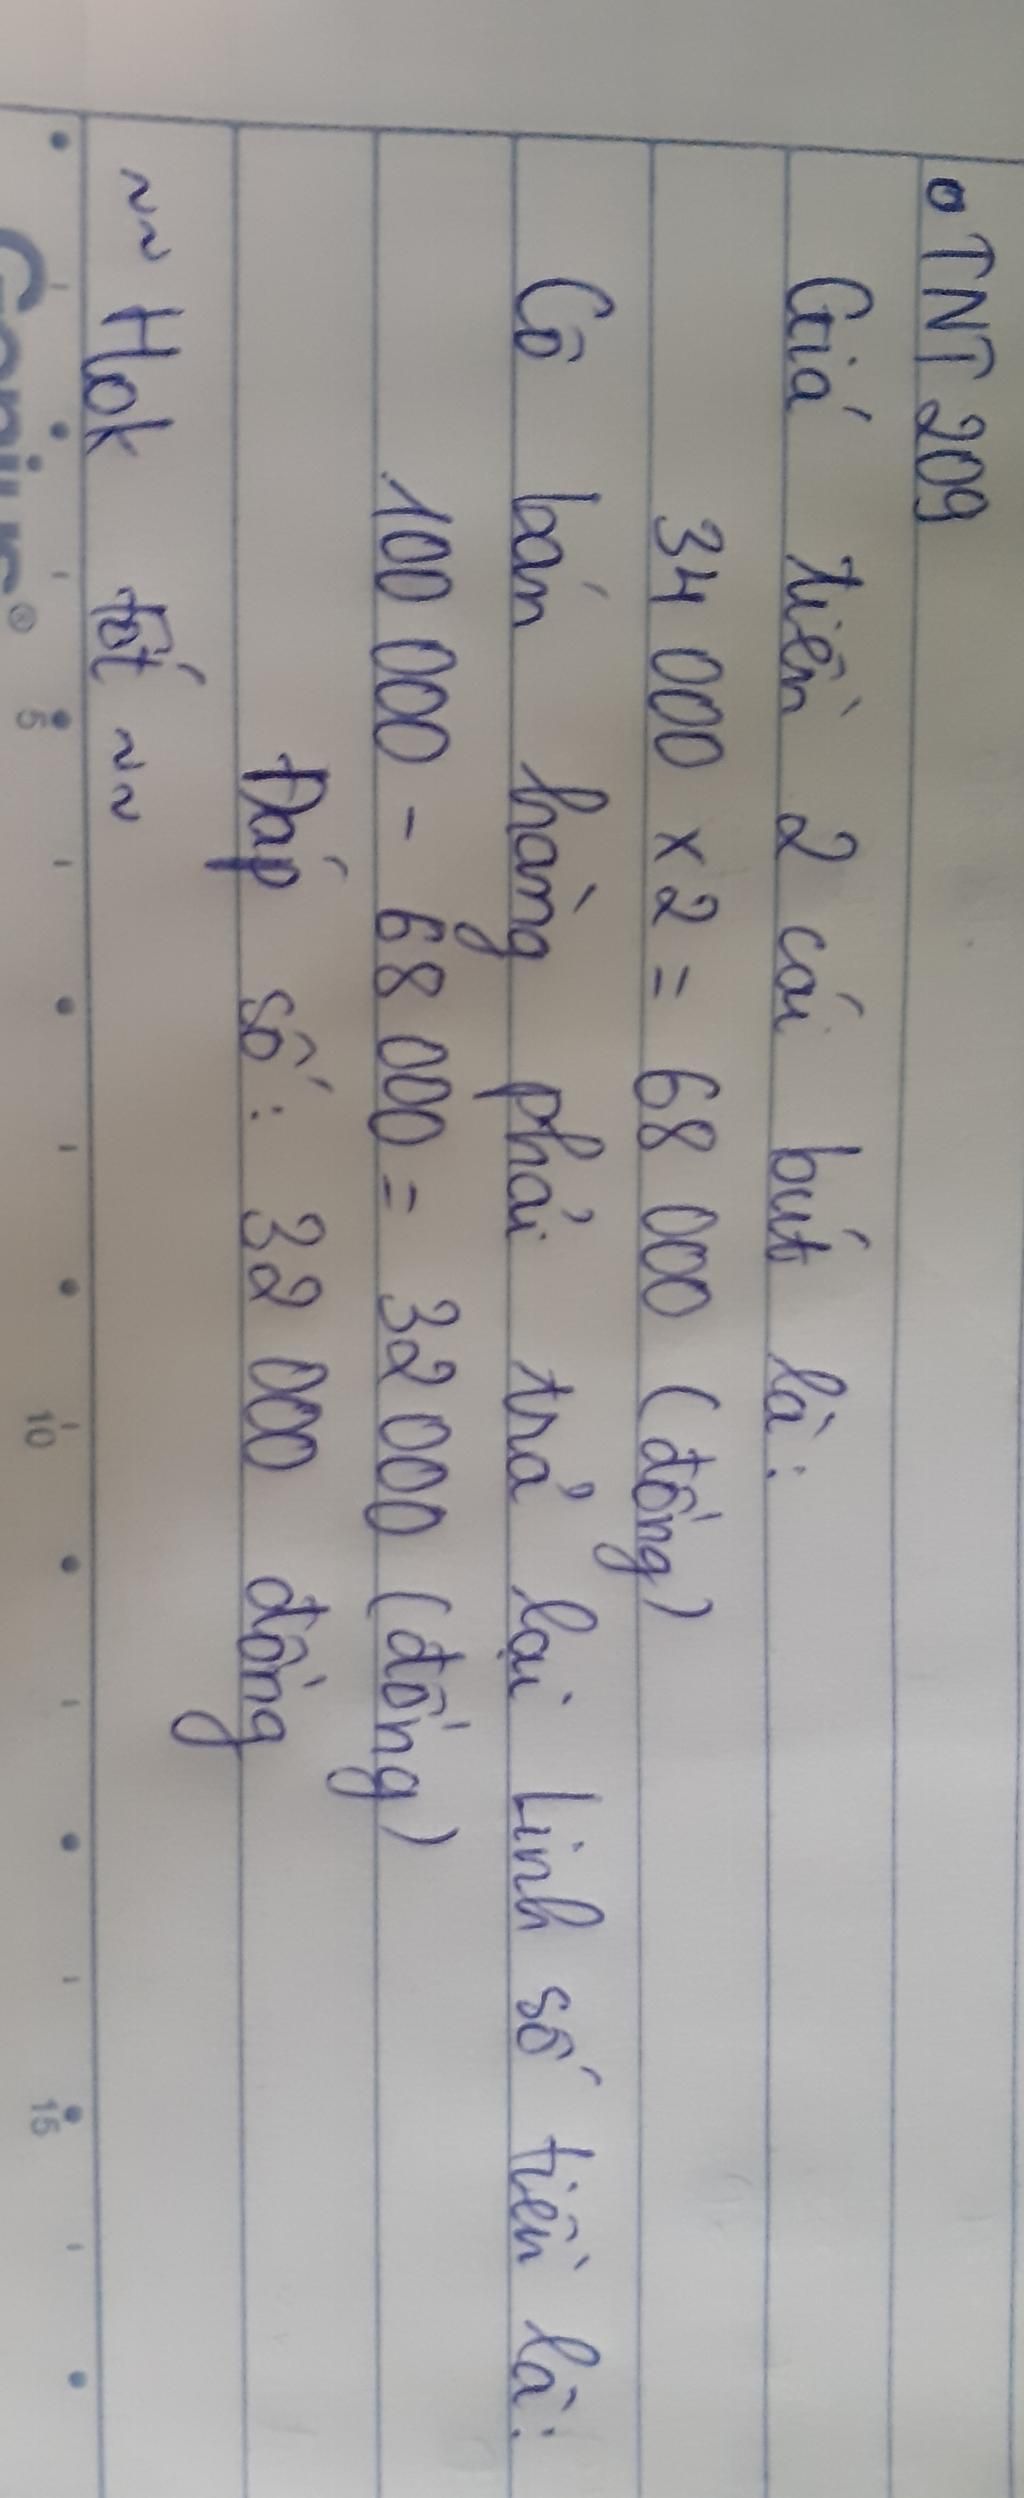 TNT 209
Giá tiền 2 cái bút là:
34 000 x 2 = 68 000 (đồng)
Cô bán hàng phải trả lại Linh số tiền là:
100 000 - 68 000 = 32 000 (đồng)
Đáp số: 32 000 đồng
~~ Hok tốt ~~
5 10 15